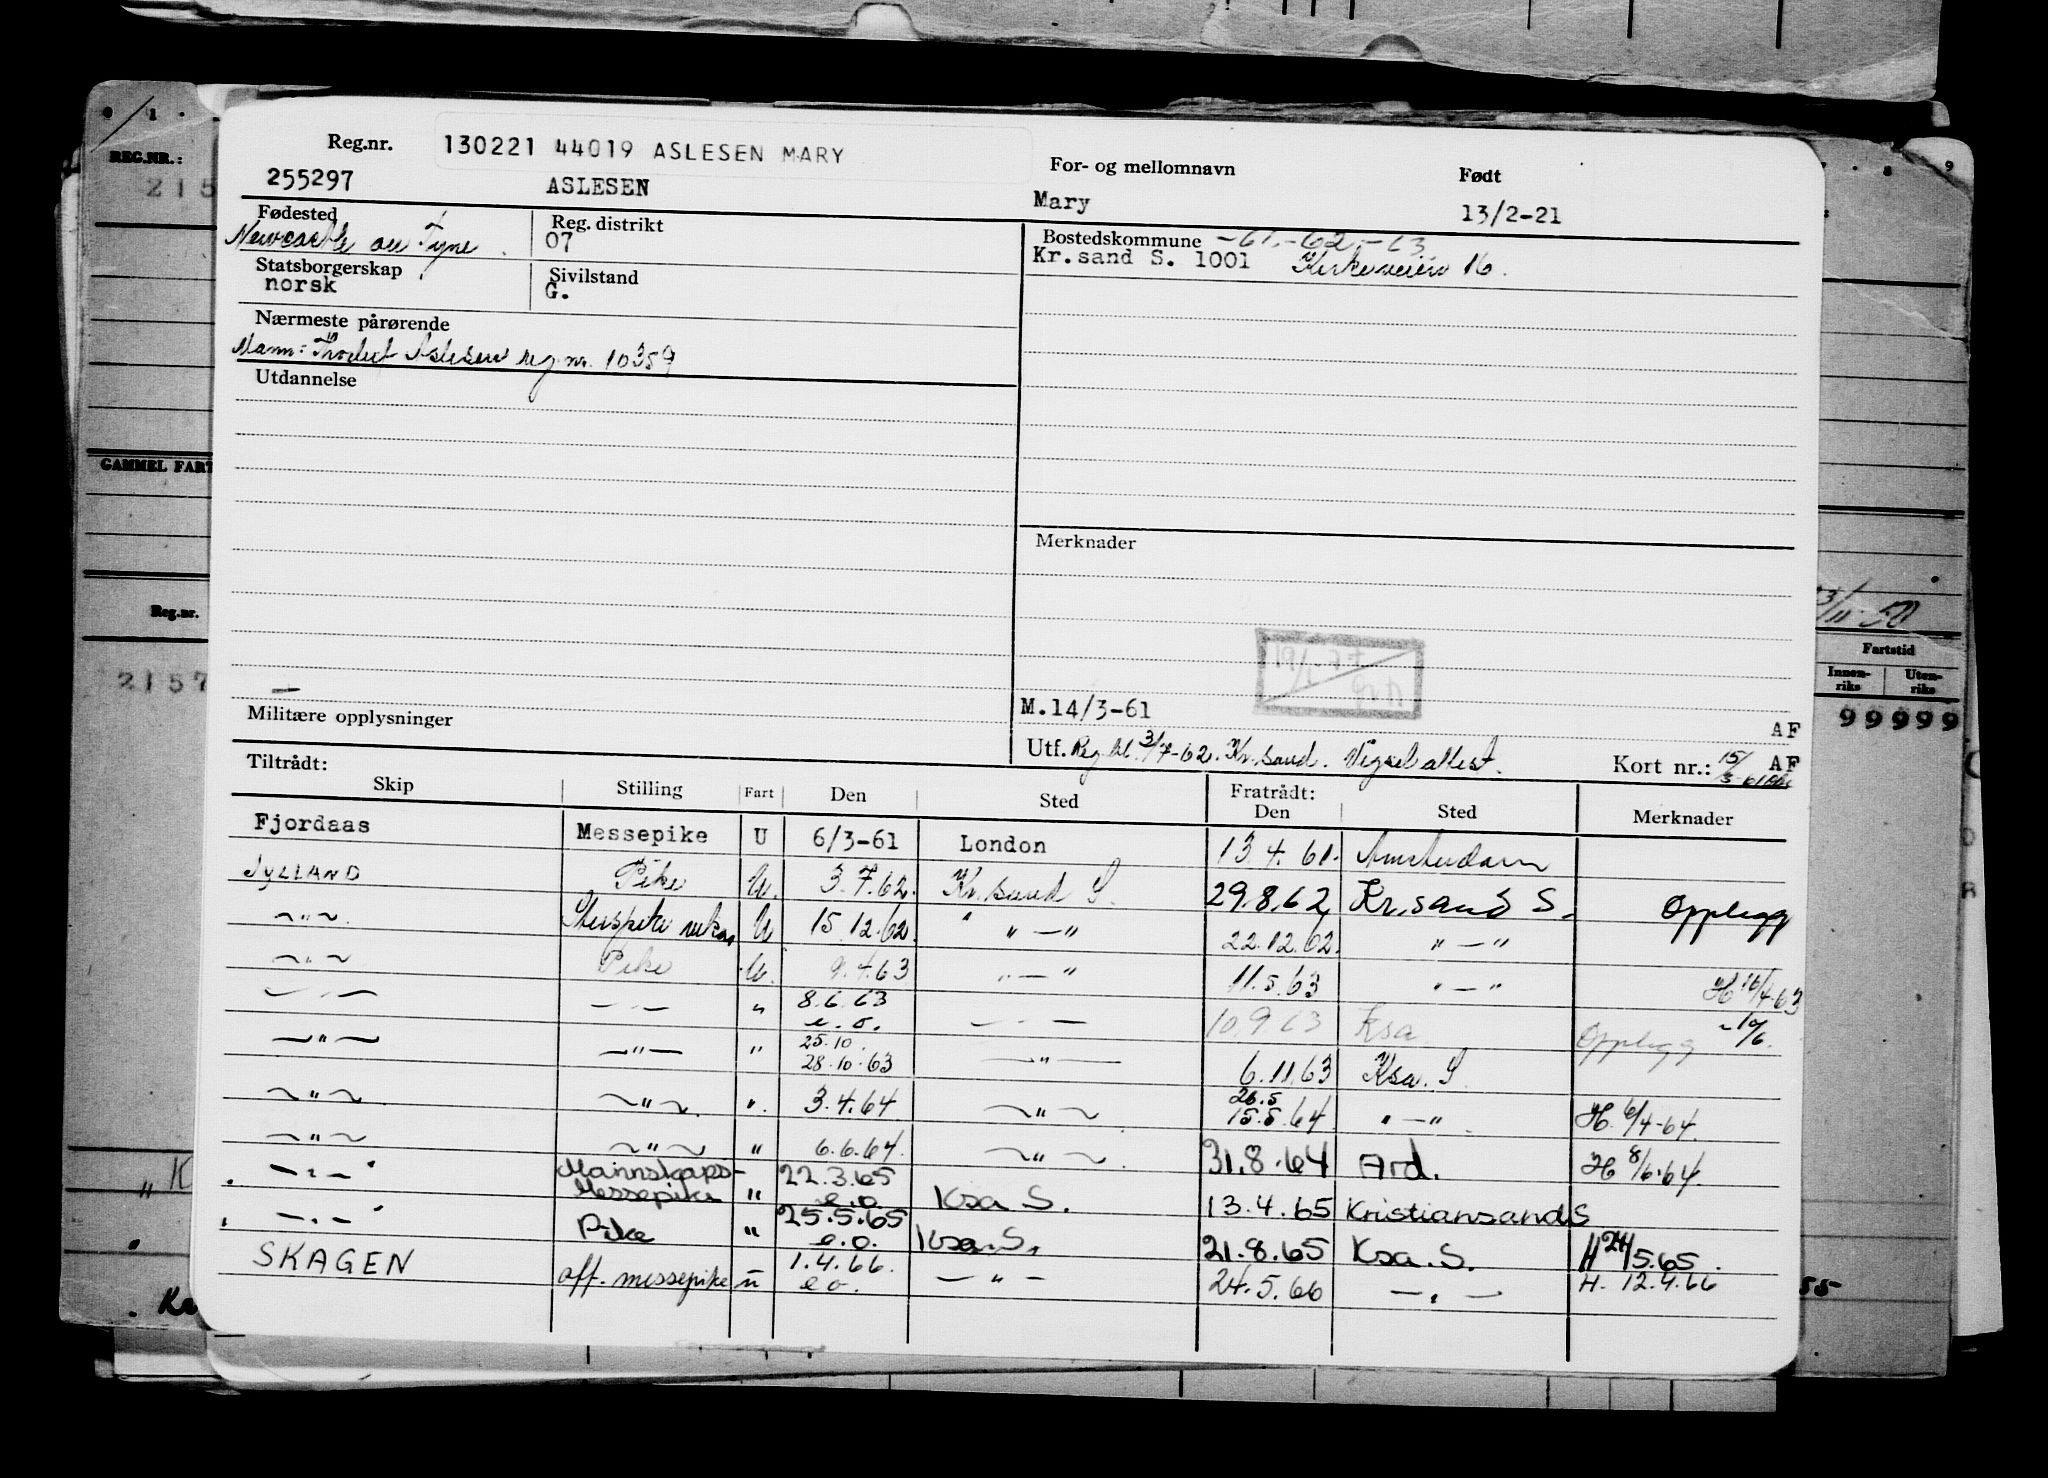 Reg.nr. 130221 44019 ASLESEN MARY For- og mellomnavn Født
255297 ASLESEN Mary 13/2-21
Fødested Reg. distrikt Bostedskommune -61.-62.-63
Newcastle on Tyne 07 Kr.sand S. 1001 Kirkeveien 16.
Statsborgerskap Sivilstand
norsk G.
Nærmeste pårørende
Mann: Aslesen reg nr. 10359
Utdannelse
Merknader
M.14/3-61
AF
Militære opplysninger
Utf. Reg.bl. 3/7-62. Kr.sand. Vigselattest. Kort nr.: 15/3-61 AF
Tiltrådt: Fratrådt:
Skip Stilling Fart Den Sted Den Sted Merknader
Fjordaas Messepike U 6/3-61 London 13.4.61. Amsterdam
JYLLAND Pike U. 3.7.62. Kr.sand S. 29.8.62 Kr.sand S. Opplegg
~"~ U 15.12.62. " "—" 22.12.62. "—"
~"~ Pike U. 9.4.63 "—" 11.5.63 "—" H 16/4-63
—"— —"— " 8.6.63 e.o. —"— 10.9.63 Ksa Opplegg
—"— —"— " 25.10. 28.10.63 —"— 6.11.63 Ksa. S.
~"~ ~"~ ". 3.4.64 ~"~ 26.5 15.5.64 "—". H. 6/4-64.
~"~ ~"~ " 6.6.64. ~"~ 31.8.64 Ard. H 8/6.64.
—"— Mannskaps-Messepike " 22.3.65 e.o. Ksa S. 13.4.65 Kristiansand S
—"— Pike " 25.5.65 e.o. Ksa. S. 21.8.65 Ksa. S. H 24/5.65.
SKAGEN off. messepike u 1.4.66. e o. —"— 24.5.66 —"— H. 12.4.66
REG.NR.:
215
GAMMEL FART
Reg.nr.
2157
Fartstid
Innen-riks Uten-riks
99999